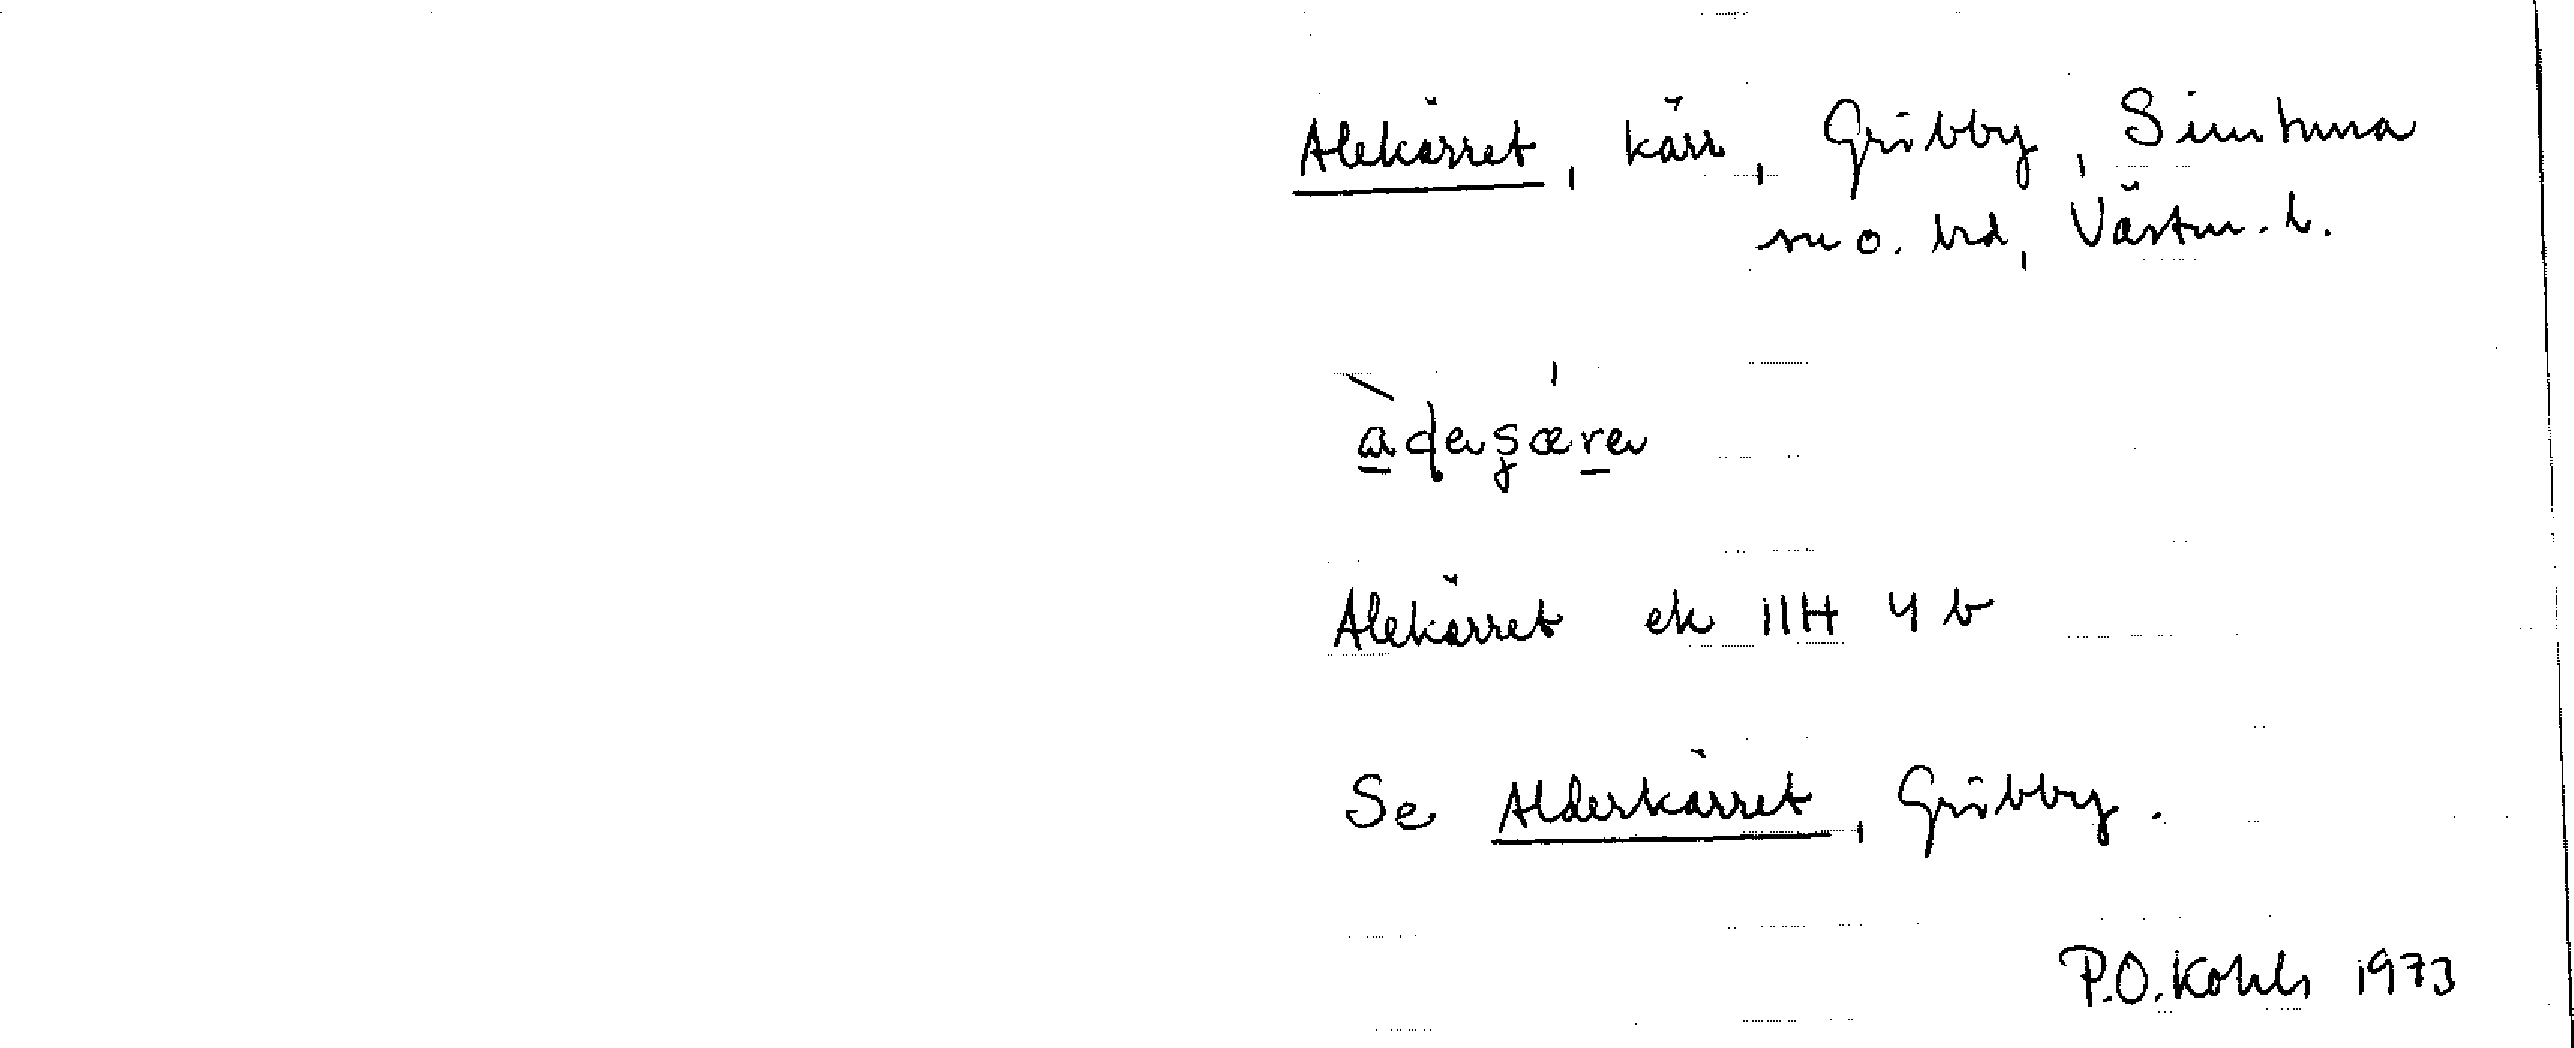 Alekärret, kärr, Gröbby, Simtuna
sn o. hd, Västm. l.
Alekärret ek 11H 4 b
Se Alderkärret, Gröbby.
P.O. Kohls 1973